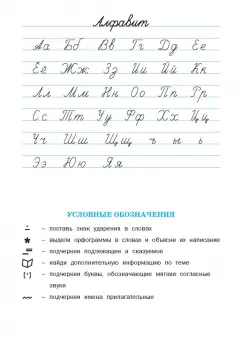 Алфавит
Аа Бб Вв Гг Дд Ее
Ёё Жж Зз Ии Йй Кк
Лл Мм Нн Оо Пп Рр
Сс Тт Уу Фф Хх Цц
Чч Шш Щщ ъ ы ь
Ээ Юю Яя
УСЛОВНЫЕ ОБОЗНАЧЕНИЯ
– поставь знак ударения в словах
* – выдели орфограммы в словах и объясни их написание
– подчеркни подлежащее и сказуемое
– найди дополнительную информацию по теме
[’] – подчеркни буквы, обозначающие мягкие согласные
звуки
– подчеркни имена прилагательные